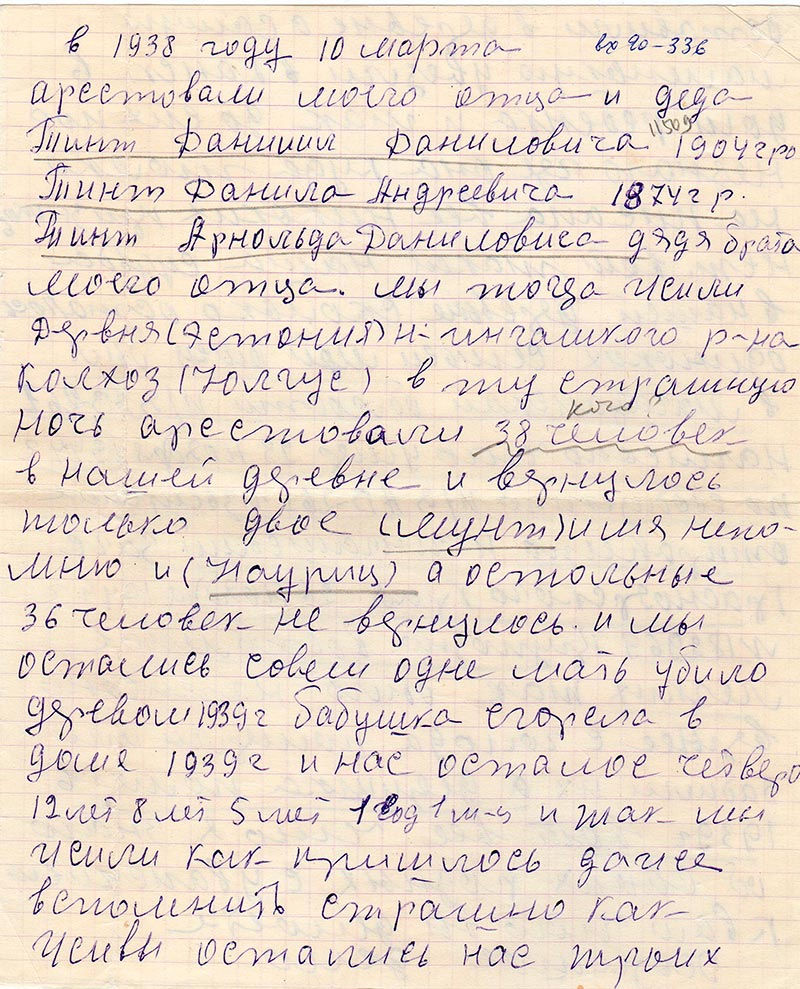 в 1938 году 10 марта вх 90-336
арестовали моего отца и деда
11509
Тинт Даниил Даниловича 1904г ро
Тинт Данила Андреевича 1874г р.
Тинт Арнольда Даниловиса дядя брата
моего отца. мы тогда жили
Деревня (Эстония) н-ингашкого р-на
колхоз (Юлгус) в ту страшную
кого?
ночь арестовали 38 человек
в нашей деревне и вернулось
только двое (Мунт) имя непо-
мню и (Науриц) а остольные
36 человек не вернулось. и мы
остались совсем одне мать убило
деревом 1939г бабушка сгорела в
доме 1939г и нас осталос четверо
12 лет 8 лет 5 лет 1 год 1 м-ц и так мы
жили как пришлось даже
вспомнить страшно как
живы остались нас троих